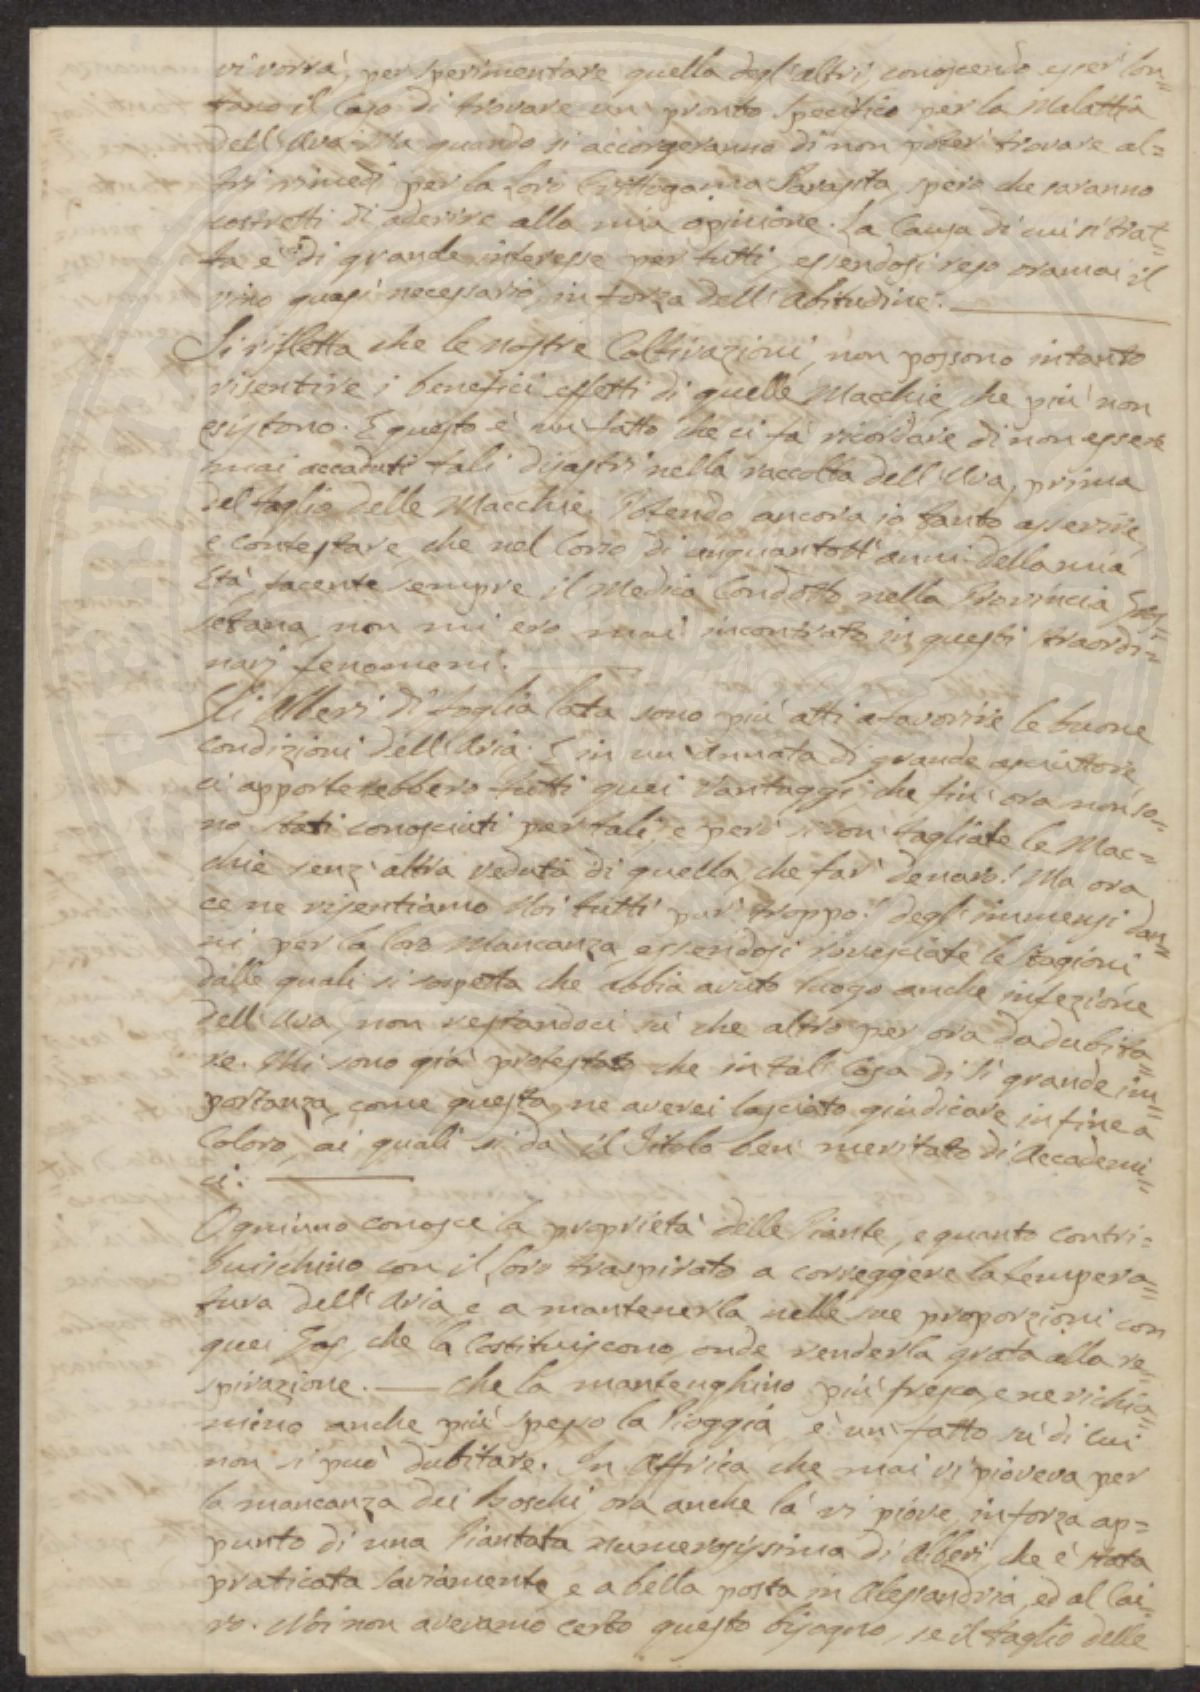 vi vorrà, per sperimentare quella degl'altri, conoscendo esser lon=
tano il Caso di trovare un pronto specifico per la Malattia
dell'Uva. Ma quando si accorgeranno di non poter trovare al=
tri rimedi per la loro Crittogama Parasita, spero che saranno
costretti di aderire alla mia opinione. La Causa di cui si trat=
ta è di grande interesse per tutti, essendosi reso oramai il
vino quasi necessario, in forza dell'Abitudine.
Si rifletta che le nostre Coltivazioni, non possono intanto
risentire i benefici effetti di quelle Macchie, che più non
esistono. E questo è un fatto che ci fà ricordare di non essere
mai accaduti tali disastri nella raccolta dell'Uva, prima
del taglio delle Macchie. Potendo ancora io tanto asserire,
e contestare, che nel Corso di cinquantott'anni della mia
Età, facente sempre il Medico Condotto nella Provincia Gros=
setana, non mi ero mai incontrato in questi straordi=
narj fenomeni.
Gli Alberi di foglia lata sono più atti a favorire le buone
condizioni dell'Aria. E in un'Annata di grande asciuttore
ci apporterebbero tutti quei vantaggi, che fin'ora non so=
no stati conosciuti per tali, e però si son tagliate le Mac=
chie senz'altra veduta di quella, che far denaro! Ma ora
ce ne risentiamo Noi tutti pur troppo! degl'immensi dan=
ni per la loro Mancanza, essendosi rovesciate le Stagioni
dalle quali si sospetta che abbia avuto luogo anche infezione
dell'Uva, non restandoci sù che altro per ora da dubita=
re. Mi sono già protestato che in tal Cosa di sì grande im=
portanza, come questa, ne averei lasciato giudicare in fine a
Coloro, ai quali si dà il Titolo ben meritato di Accademi=
ci.
Ognuno conosce la proprietà delle Piante, e quanto contri=
buischino con il loro traspirato a correggere la tempera=
tura dell'Aria, e a mantenerla nelle sue proporzioni con
quei Gas, che la Costituiscono, onde renderla grata alla re=
spirazione. — Che la mantenghino più fresca, e ne richia=
mino anche più spesso la Pioggia, è un fatto sù di cui
non si può dubitare. In Affrica che mai vi pioveva per
la mancanza dei Boschi, ora anche là vi piove, in forza ap=
punto di una Piantata numerosissima di Alberi, che è stata
praticata saviamente, e a bella posta in Alessandria, ed al Cai=
ro. Noi non avevamo certo questo bisogno, se il taglio delle